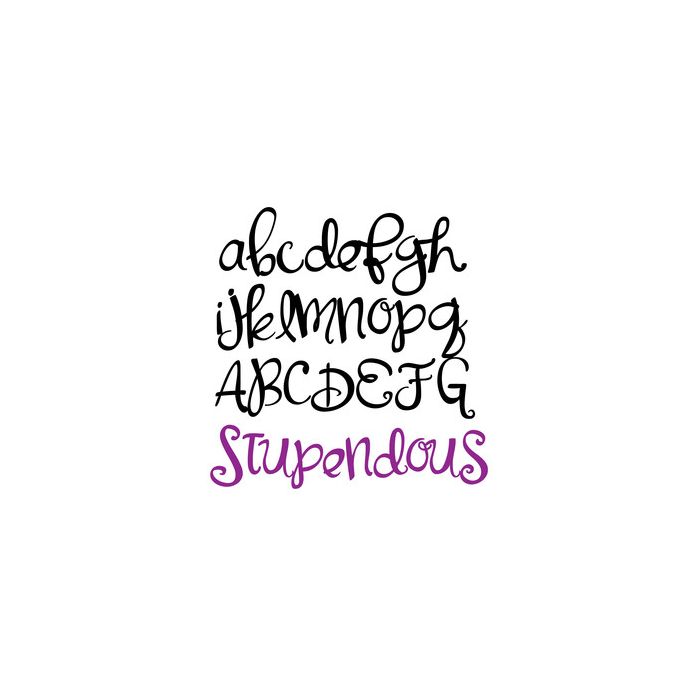 abcdefgh
ijklmnopq
ABCDEFG
Stupendous